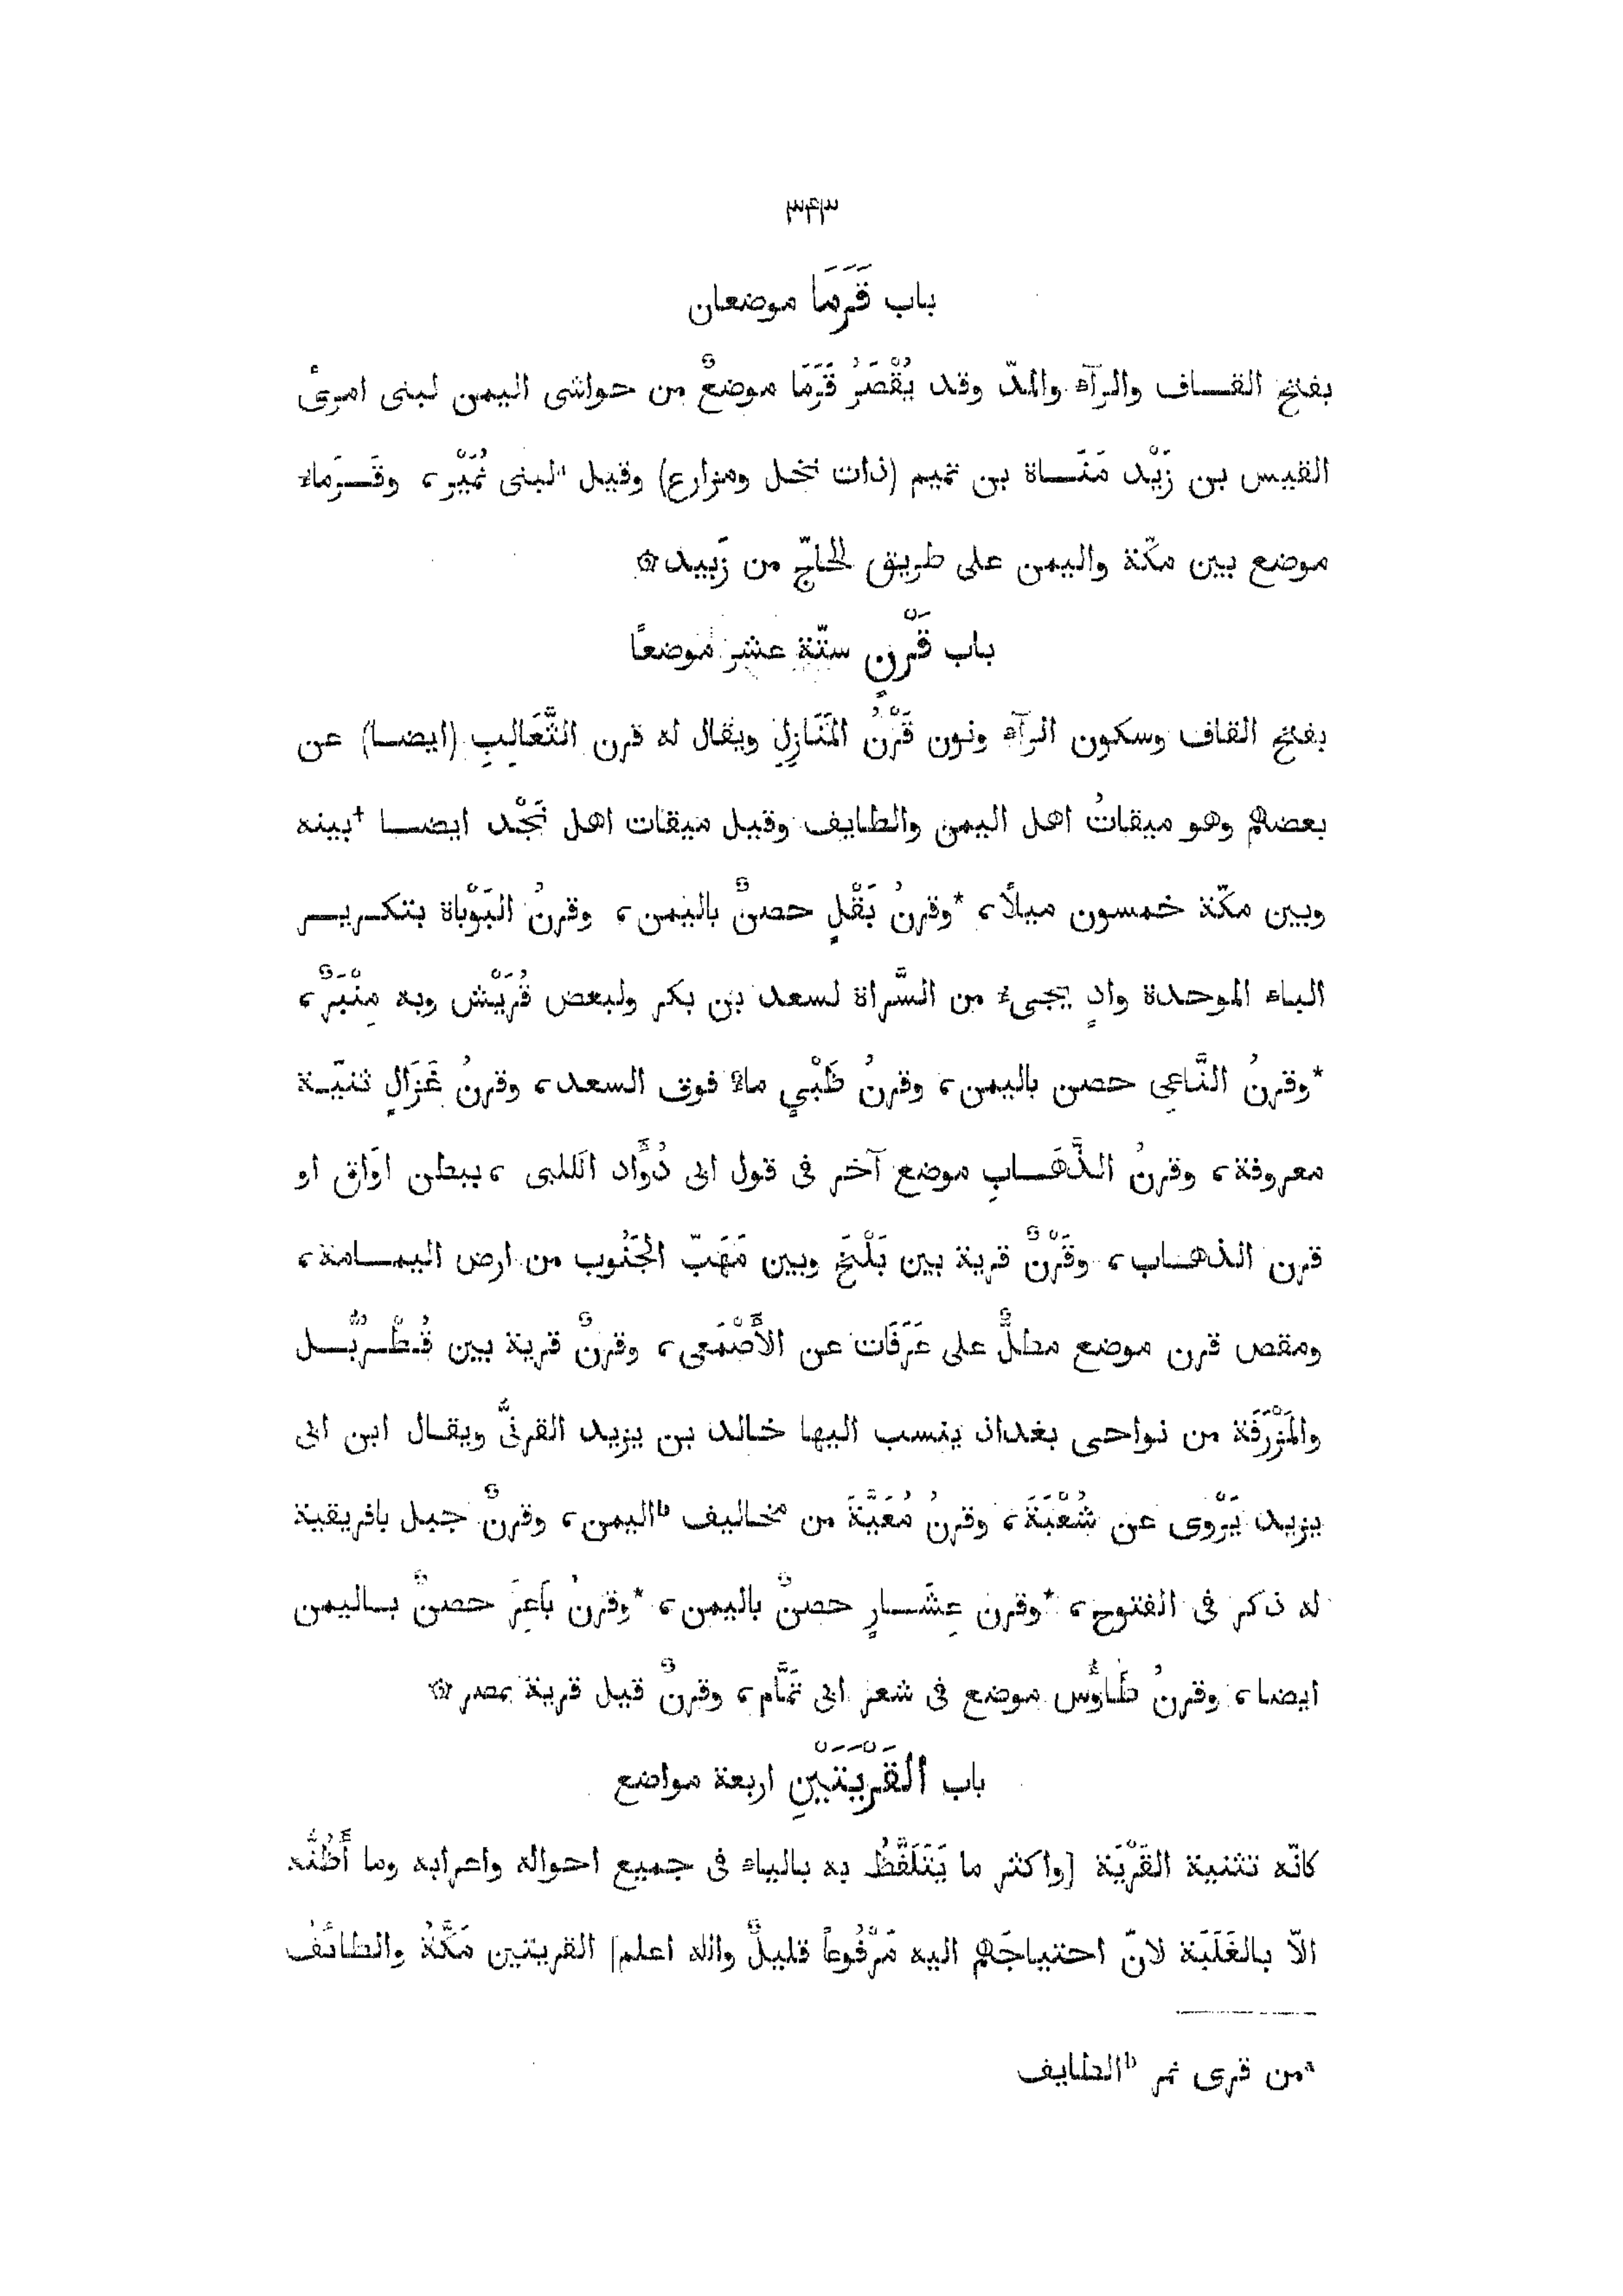 ٣٤٣
باب قَرَمَا موضعان
بفتح القاف والرآء والمدّ وقد يُقْصَرُ قَرَمَا موضعٌ من حواشى اليمن لبنى امرئ
القيس بن زَيْد مَنَاة بن تميم (ذات نخل ومزارع) وقيل ªلبنى نُمَيْر، وقَرَماء
موضع بين مكّة واليمن على طريق الحاجّ من زَبيد ۞
باب قَرْنٍ ستّة عشر موضعاً
بفتح القاف وسكون الرآء ونون قَرْنُ المَنَازِلِ ويقال له قرن الثَّعَالِبِ (ايضا) عن
بعضهم وهو ميقاتُ اهل اليمن والطايف وقيل ميقات اهل نَجْد ايضا †بينه
وبين مكّة خمسون ميلاً، *وقرنُ بَقْلٍ حصنٌ باليمن، وقرنُ البَوْباة بتكرير
الباء الموحدة وادٍ يجىء من السَّراة لسعد بن بكر ولبعض قُرَيْش وبه مِنْبَرٌ،
*وقرنُ النَّاعِى حصن باليمن، وقرنُ ظَبْىٍ ماءٌ فوق السعد، وقرنُ غَزَالٍ ثنيّة
معروفة، وقرنُ الذَّهَابِ موضع آخر فى قول ابى دُوَّاد الكلبى، ببطن اوَاق او
قرن الذهاب، وقَرْنٌ قرية بين بَلْخَ وبين مَهَبّ الجَنُوب من ارض اليمامة،
ومقص قرن موضع مطلٌّ على عَرَفَات عن الأَصْمَعى، وقرنٌ قرية بين قُطْرُبُّل
والمَزْرَفَة من نواحى بغداذ ينسب اليها خالد بن يزيد القرنىُّ ويقال ابن ابى
يزيد يَرْوى عن شُعْبَةَ، وقرنُ مُعَيَّةَ من مخاليف ᵇاليمن، وقرنٌ جبل بافريقية
له ذكر فى الفتوح، *وقرن عِشَارٍ حصنٌ باليمن، *وقرنُ بَاعِرَ حصنٌ باليمن
ايضا، وقرنُ طَاوُس موضع فى شعر ابى تَمَّام، وقرنٌ قيل قرية بمصر ۞
باب القَرْيَتَيْنِ اربعة مواضع
كانّه تثنية القَرْيَة [واكثر ما يَتَلَفَّظُ به بالياء فى جميع احواله واعرابه وما أَظُنُّه
الاّ بالغَلَبَة لانّ احتياجَهم اليه مَرْفُوعاً قليلٌ والله اعلم] القريتين مَكَّةُ والطائفُ
ªمن قرى نمر ᵇالطايف